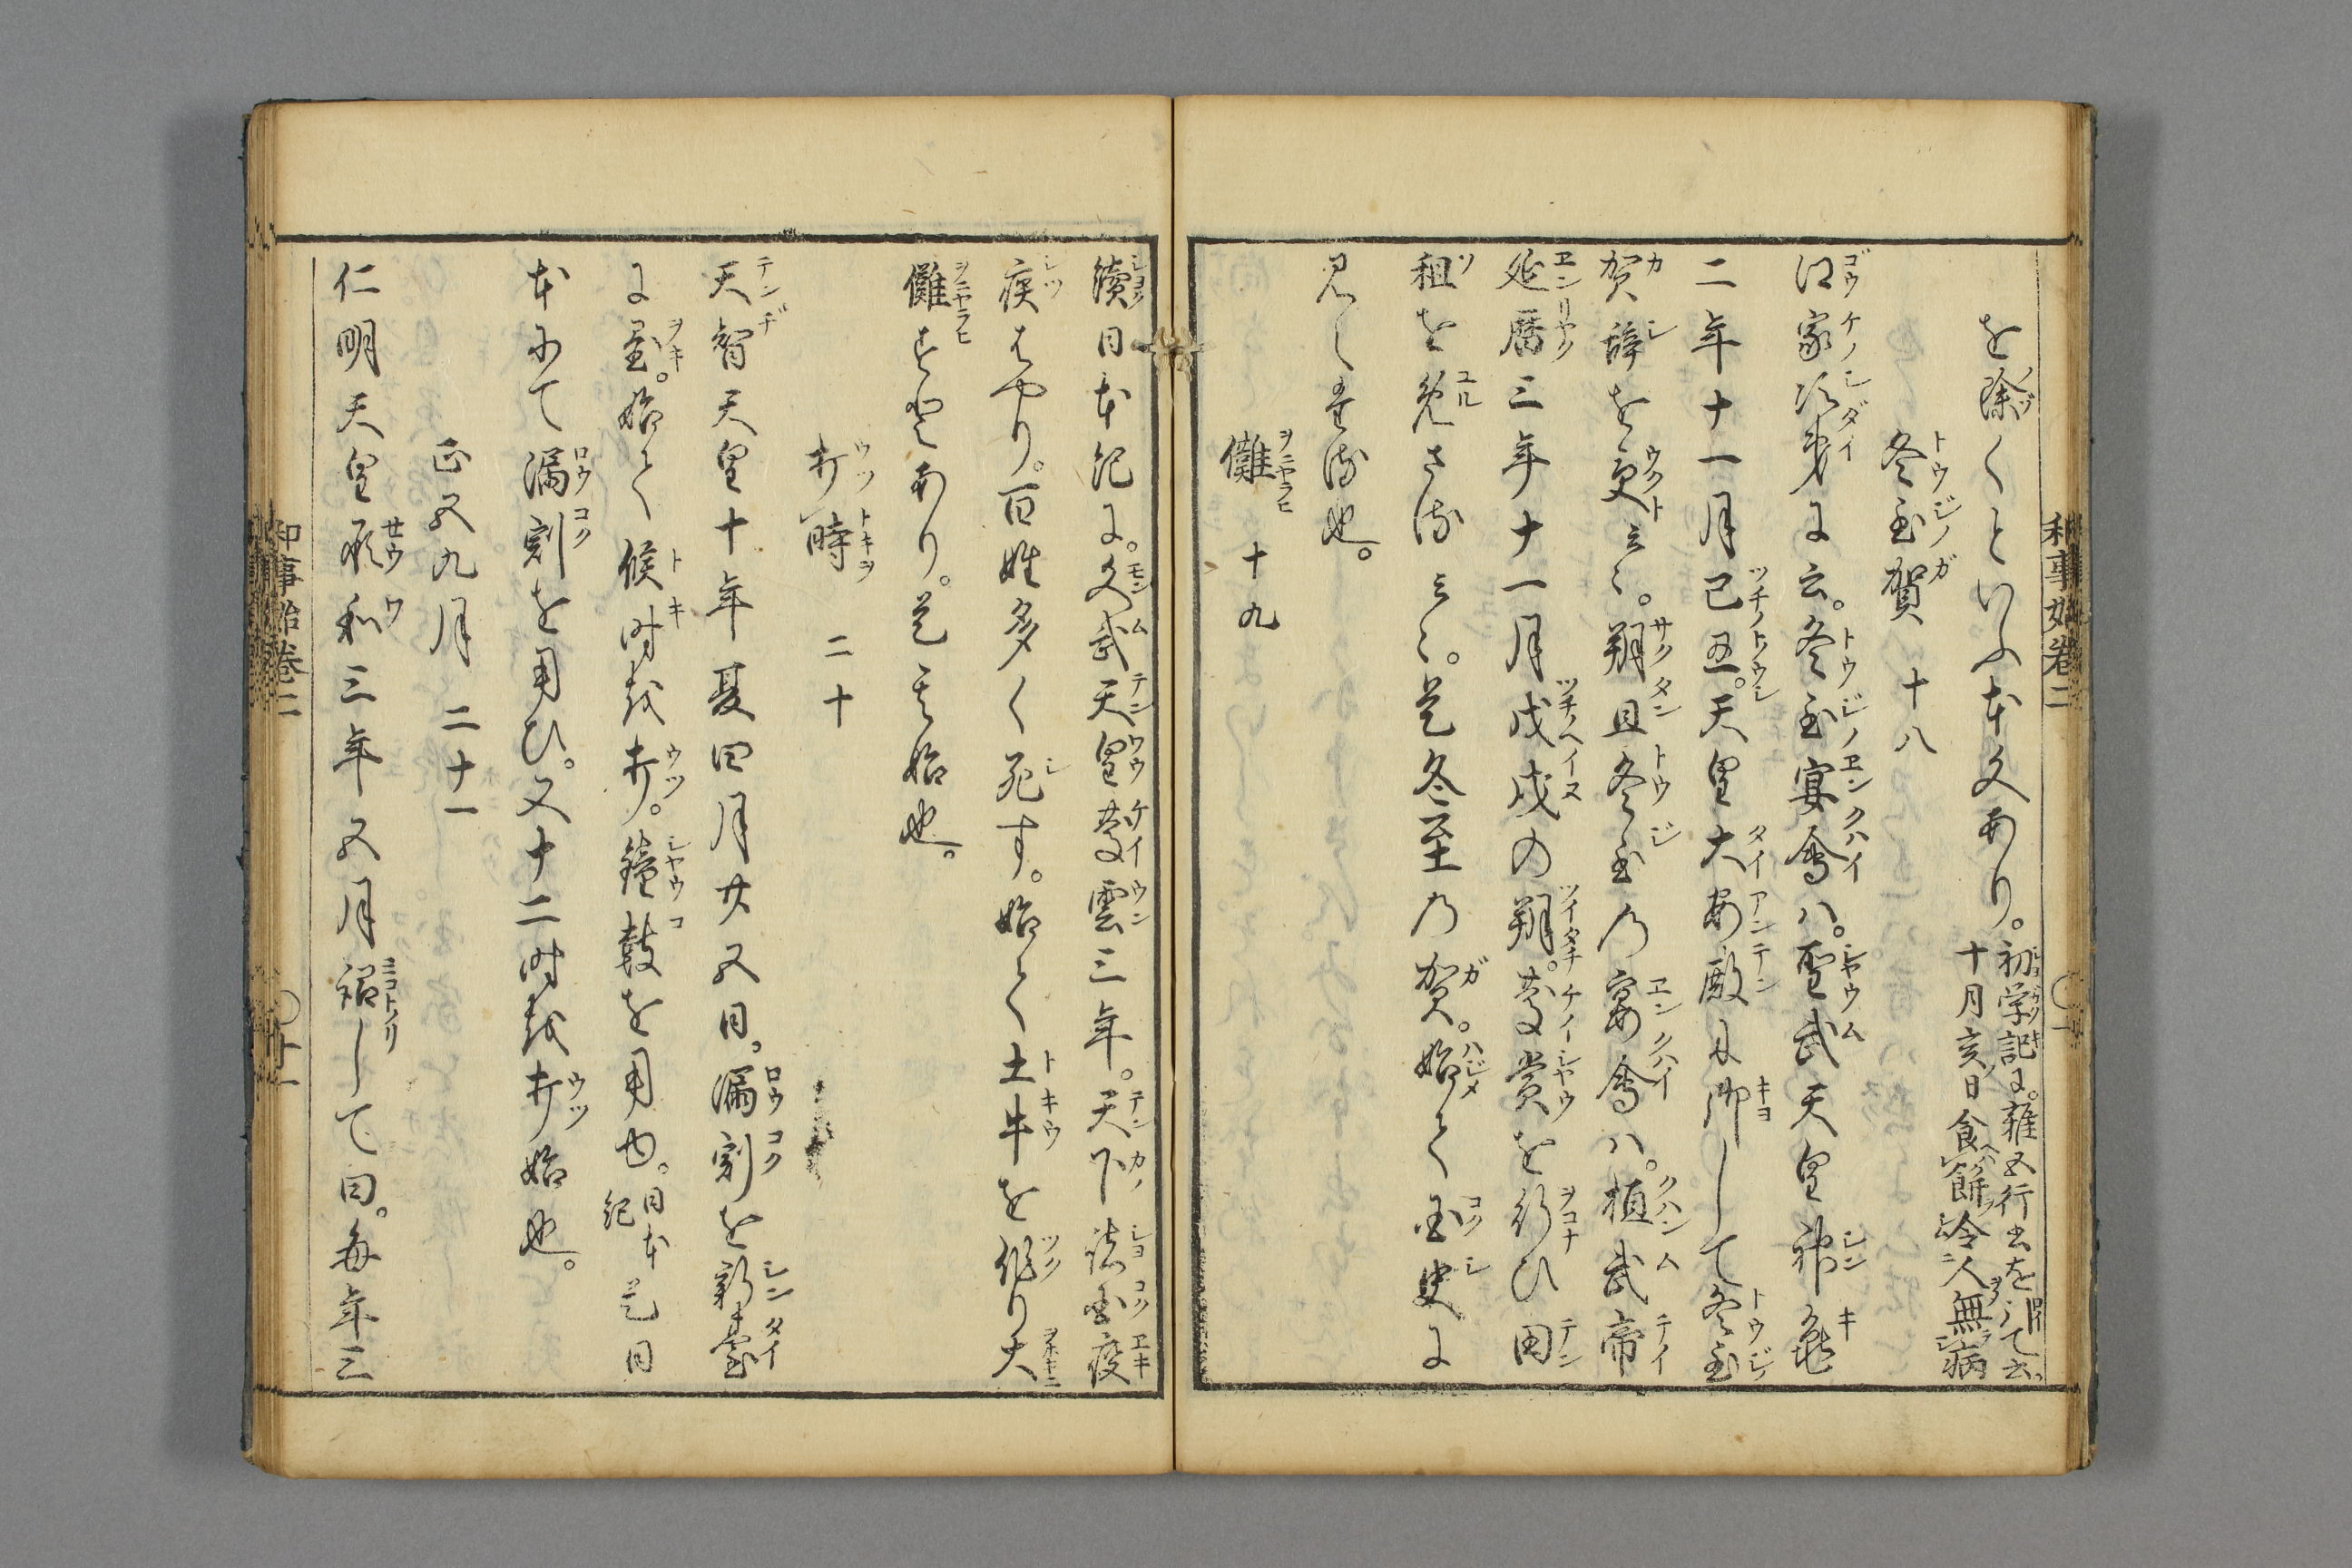 を除くといふ本文あり。初学記に。雑五行書を引て云。
十月亥日食餅冷人無病
冬至賀 十八
江家次第に云。冬至宴会ハ。聖武天皇神亀
二年十一月己丑。天皇大安殿に御して冬至
賀辞を受ト云々。朔旦冬至乃宴会ハ。桓武帝
延暦三年十一月戊戌の朔。慶賞を行ひ田
租を免さる云々。是冬至乃賀。始て国史に
見へ侍る也。
儺 十九
続日本紀に。文武天皇慶雲三年。天下諸国疫
疾はやり。百姓多く死す。始て土牛を作り大
儺すとあり。是其始也。
打時 二十
天智天皇十年夏四月廿五日。漏刻を新台
に置。始て候時を打。鐘鼓を用也。日本紀 是日
本にて漏刻を用ひ。又十二時を打始也。
正五九月 二十一
仁明天皇承和三年五月詔して曰。毎年三
和事始巻二
和事始巻二